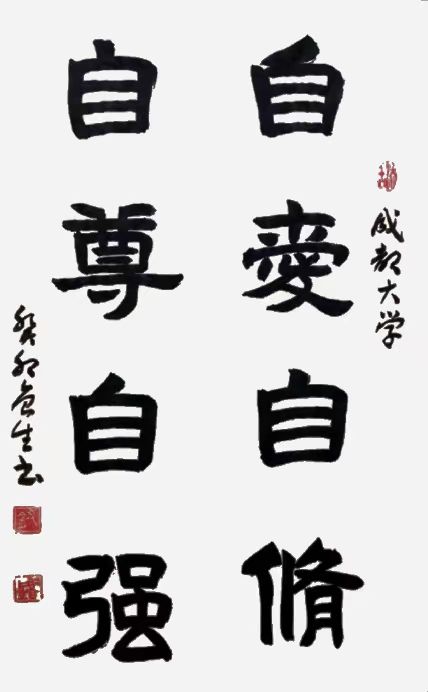 成都大学
自愛自脩
自尊自强
癸卯 生书